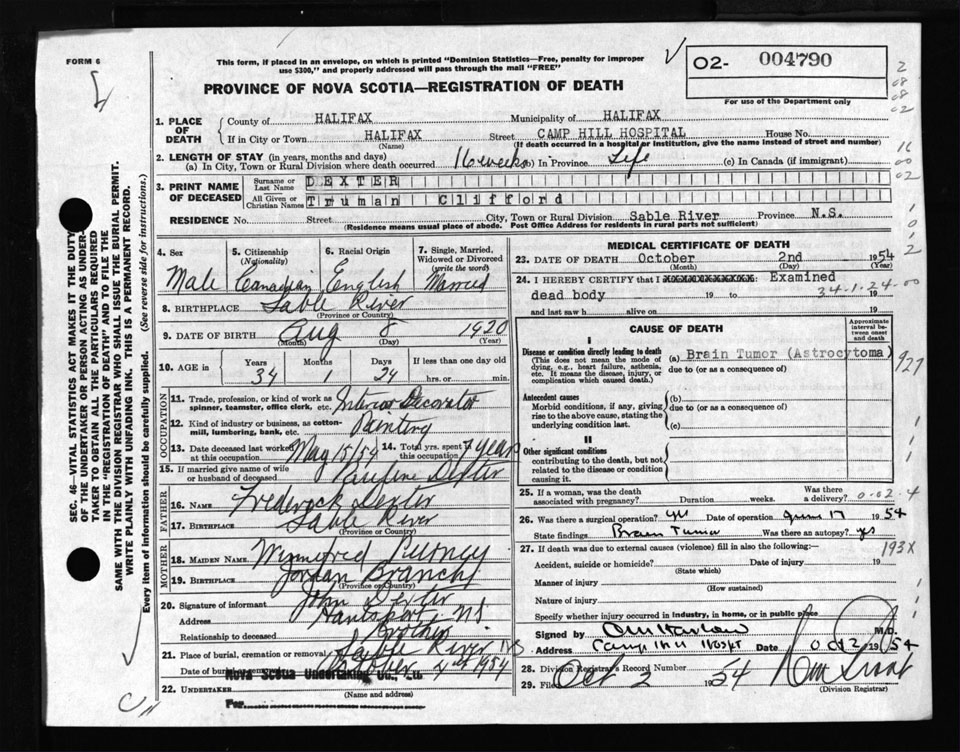 FORM 6
This form, if placed in an envelope, on which is printed "Dominion Statistics—Free, penalty for improper
use $300," and properly addressed will pass through the mail "FREE"
PROVINCE OF NOVA SCOTIA—REGISTRATION OF DEATH
02- 004790
For use of the Department only
1. PLACE OF DEATH County of HALIFAX Municipality of HALIFAX
If in City or Town HALIFAX Street CAMP HILL HOSPITAL House No.
(Name) (If death occurred in a hospital or institution, give the name instead of street and number)
2. LENGTH OF STAY (in years, months and days)
(a) In City, Town or Rural Division where death occurred 16 weeks (b) In Province Life (c) In Canada (if immigrant)
3. PRINT NAME OF DECEASED Surname or Last Name DEXTER
All Given or Christian Names Truman Clifford
RESIDENCE No. Street City, Town or Rural Division Sable River Province N.S.
(Residence means usual place of abode. Post Office Address for residents in rural parts not sufficient)
4. Sex Male
5. Citizenship (Nationality) Canadian
6. Racial Origin English
7. Single, Married, Widowed or Divorced (write the word) Married
8. BIRTHPLACE Sable River
(Province or Country)
9. DATE OF BIRTH Aug 8 1920
(Month) (Day) (Year)
10. AGE in Years Months Days If less than one day old
34 1 24 hrs. or min.
OCCUPATION
11. Trade, profession, or kind of work as spinner, teamster, office clerk, etc. Interior Decorator
12. Kind of industry or business, as cotton-mill, lumbering, bank, etc. Painting
13. Date deceased last worked at this occupation May 15/54 14. Total yrs. spent in this occupation 7 years
15. If married give name of wife or husband of deceased Pauline Dexter
FATHER
16. NAME Frederick Dexter
17. BIRTHPLACE Sable River
(Province or Country)
MOTHER
18. MAIDEN NAME Winnifred
19. BIRTHPLACE Jordan Branch
(Province or Country)
20. Signature of informant John Dexter
Address Hantsport, N.S.
Relationship to deceased Brother
21. Place of burial, cremation or removal Sable River NS
Date of burial or removal October 4th 1954
22. UNDERTAKER Nova Scotia Undertaking Co., Lt
(Name and address)
For
MEDICAL CERTIFICATE OF DEATH
23. DATE OF DEATH October 2nd 1954
(Month) (Day) (Year)
24. I HEREBY CERTIFY that I Examined
dead body 19 to 19
34-1-24-00
and last saw h alive on 19
CAUSE OF DEATH
Approximate interval between onset and death
I
Disease or condition directly leading to death
(This does not mean the mode of dying, e.g., heart failure, asthenia, etc. It means the disease, injury, or complication which caused death.)
(a) Brain Tumor (Astrocytoma)
due to (or as a consequence of)
Antecedent causes
Morbid conditions, if any, giving rise to the above cause, stating the underlying condition last.
(b)
due to (or as a consequence of)
(c)
II
Other significant conditions
contributing to the death, but not related to the disease or condition causing it.
25. If a woman, was the death associated with pregnancy? Duration weeks. Was there a delivery?
0-02-4
26. Was there a surgical operation? yes Date of operation June 17 1954
State findings Brain Tumor Was there an autopsy? yes
193X
27. If death was due to external causes (violence) fill in also the following:—
Accident, suicide or homicide? Date of injury 19
(State which)
Manner of injury
(How sustained)
Nature of injury
Specify whether injury occurred in industry, in home, or in public place
Signed by M.D.
Address Camp Hill Hospt Date Oct 2 1954
28. Division Registrar's Record Number
29. Filed Oct 2 1954
(Division Registrar)
SEC. 46—VITAL STATISTICS ACT MAKES IT THE DUTY
OF THE UNDERTAKER OR PERSON ACTING AS UNDER-
TAKER TO OBTAIN ALL THE PARTICULARS REQUIRED
IN THE "REGISTRATION OF DEATH" AND TO FILE THE
SAME WITH THE DIVISION REGISTRAR WHO SHALL ISSUE THE BURIAL PERMIT.
WRITE PLAINLY WITH UNFADING INK. THIS IS A PERMANENT RECORD.
Every item of information should be carefully supplied. (See reverse side for instructions.)